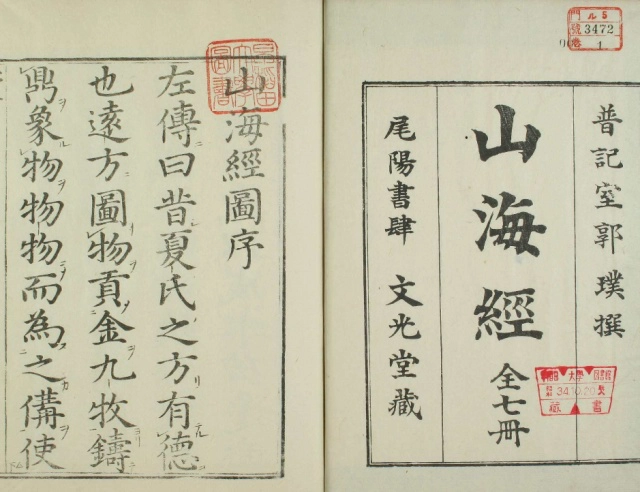 門 ル 5
號 3472
卷 1
普記室郭璞撰
山海經 全七冊
尾陽書肆 文光堂藏
34.10.20
藏書
山海經圖序
左傳曰昔夏氏之方有德
也遠方圖物貢金九牧鑄
鼎象物物物而為之備使